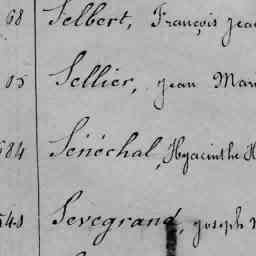 68 Selbert, François Jea
05 Sellier, Jean Mar
584 Sénéchal, Hyacinthe H
548 Sevegrand, Joseph